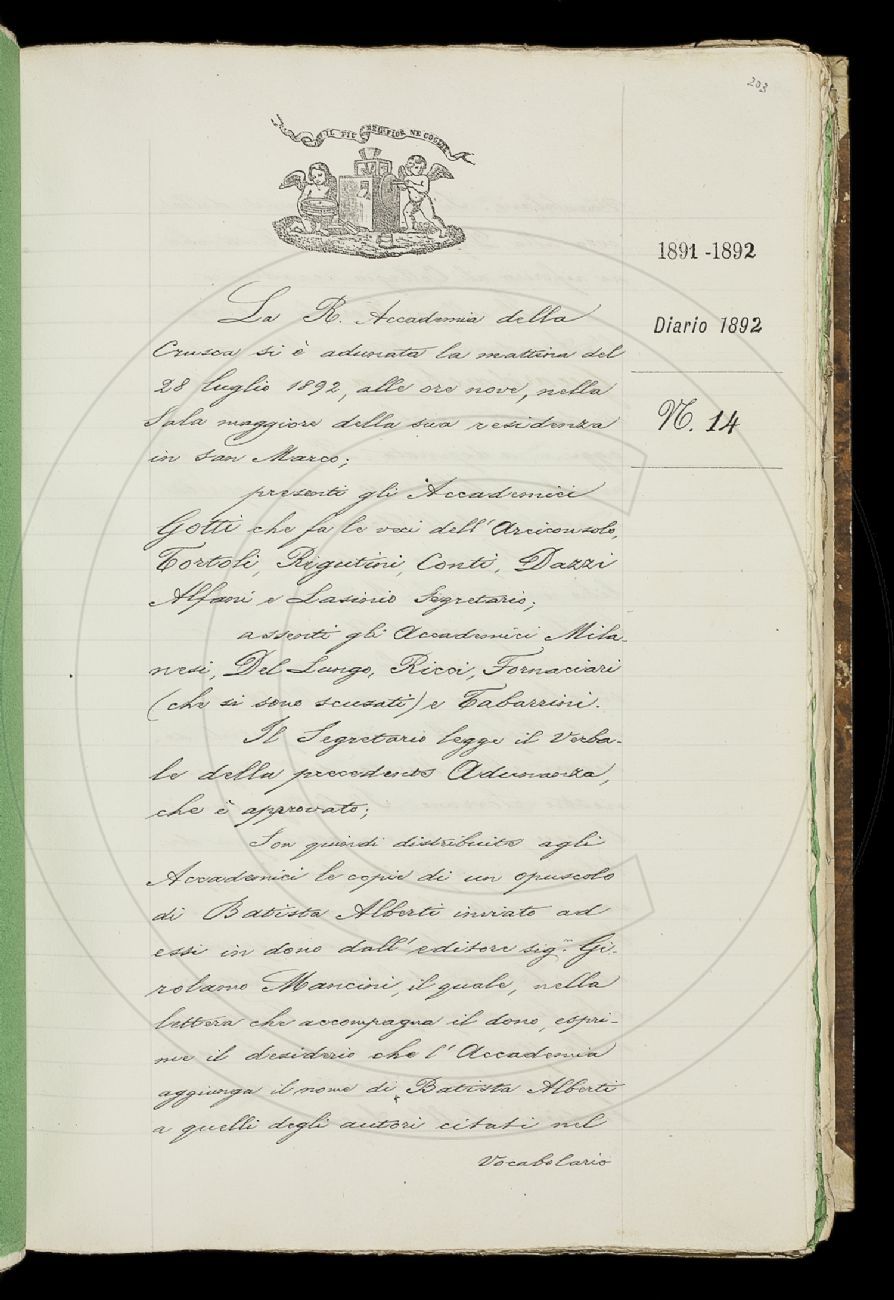 203
IL PIÙ BEL FIOR NE COGLIE
1891-1892
Diario 1892
N. 14
La R. Accademia della
Crusca si è adunata la mattina del
28 luglio 1892, alle ore nove, nella
Sala maggiore della sua residenza
in San Marco;
presenti gli Accademici
Gotti che fa le veci dell'Arciconsolo,
Tortoli, Rigutini, Conti, Dazzi
Alfani e Lasinio Segretario;
assenti gli Accademici Mila-
nesi, Del Lungo, Ricci, Fornaciari
(che si sono scusati) e Tabarrini.
Il Segretario legge il Verba-
le della precedente Adunanza,
che è approvato;
Son quindi distribuite agli
Accademici le copie di un opuscolo
di Batista Alberti inviato ad
essi in dono dall'editore sig.r Gi-
rolamo Mancini, il quale, nella
lettera che accompagna il dono, espri-
me il desiderio che l'Accademia
aggiunga il nome di Batista Alberti
a quelli degli autori citati nel
Vocabolario